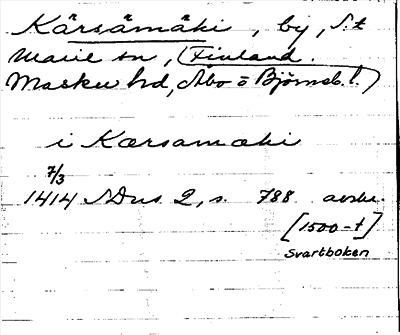 Kärsämäki, by, S:t
Marie sn, (Finland.
Masku hd, Åbo o Björneb. l.)
i Kærsamæki
7/3
1414 SDns 2, s. 788 avskr.
[1500-t]
Svartboken